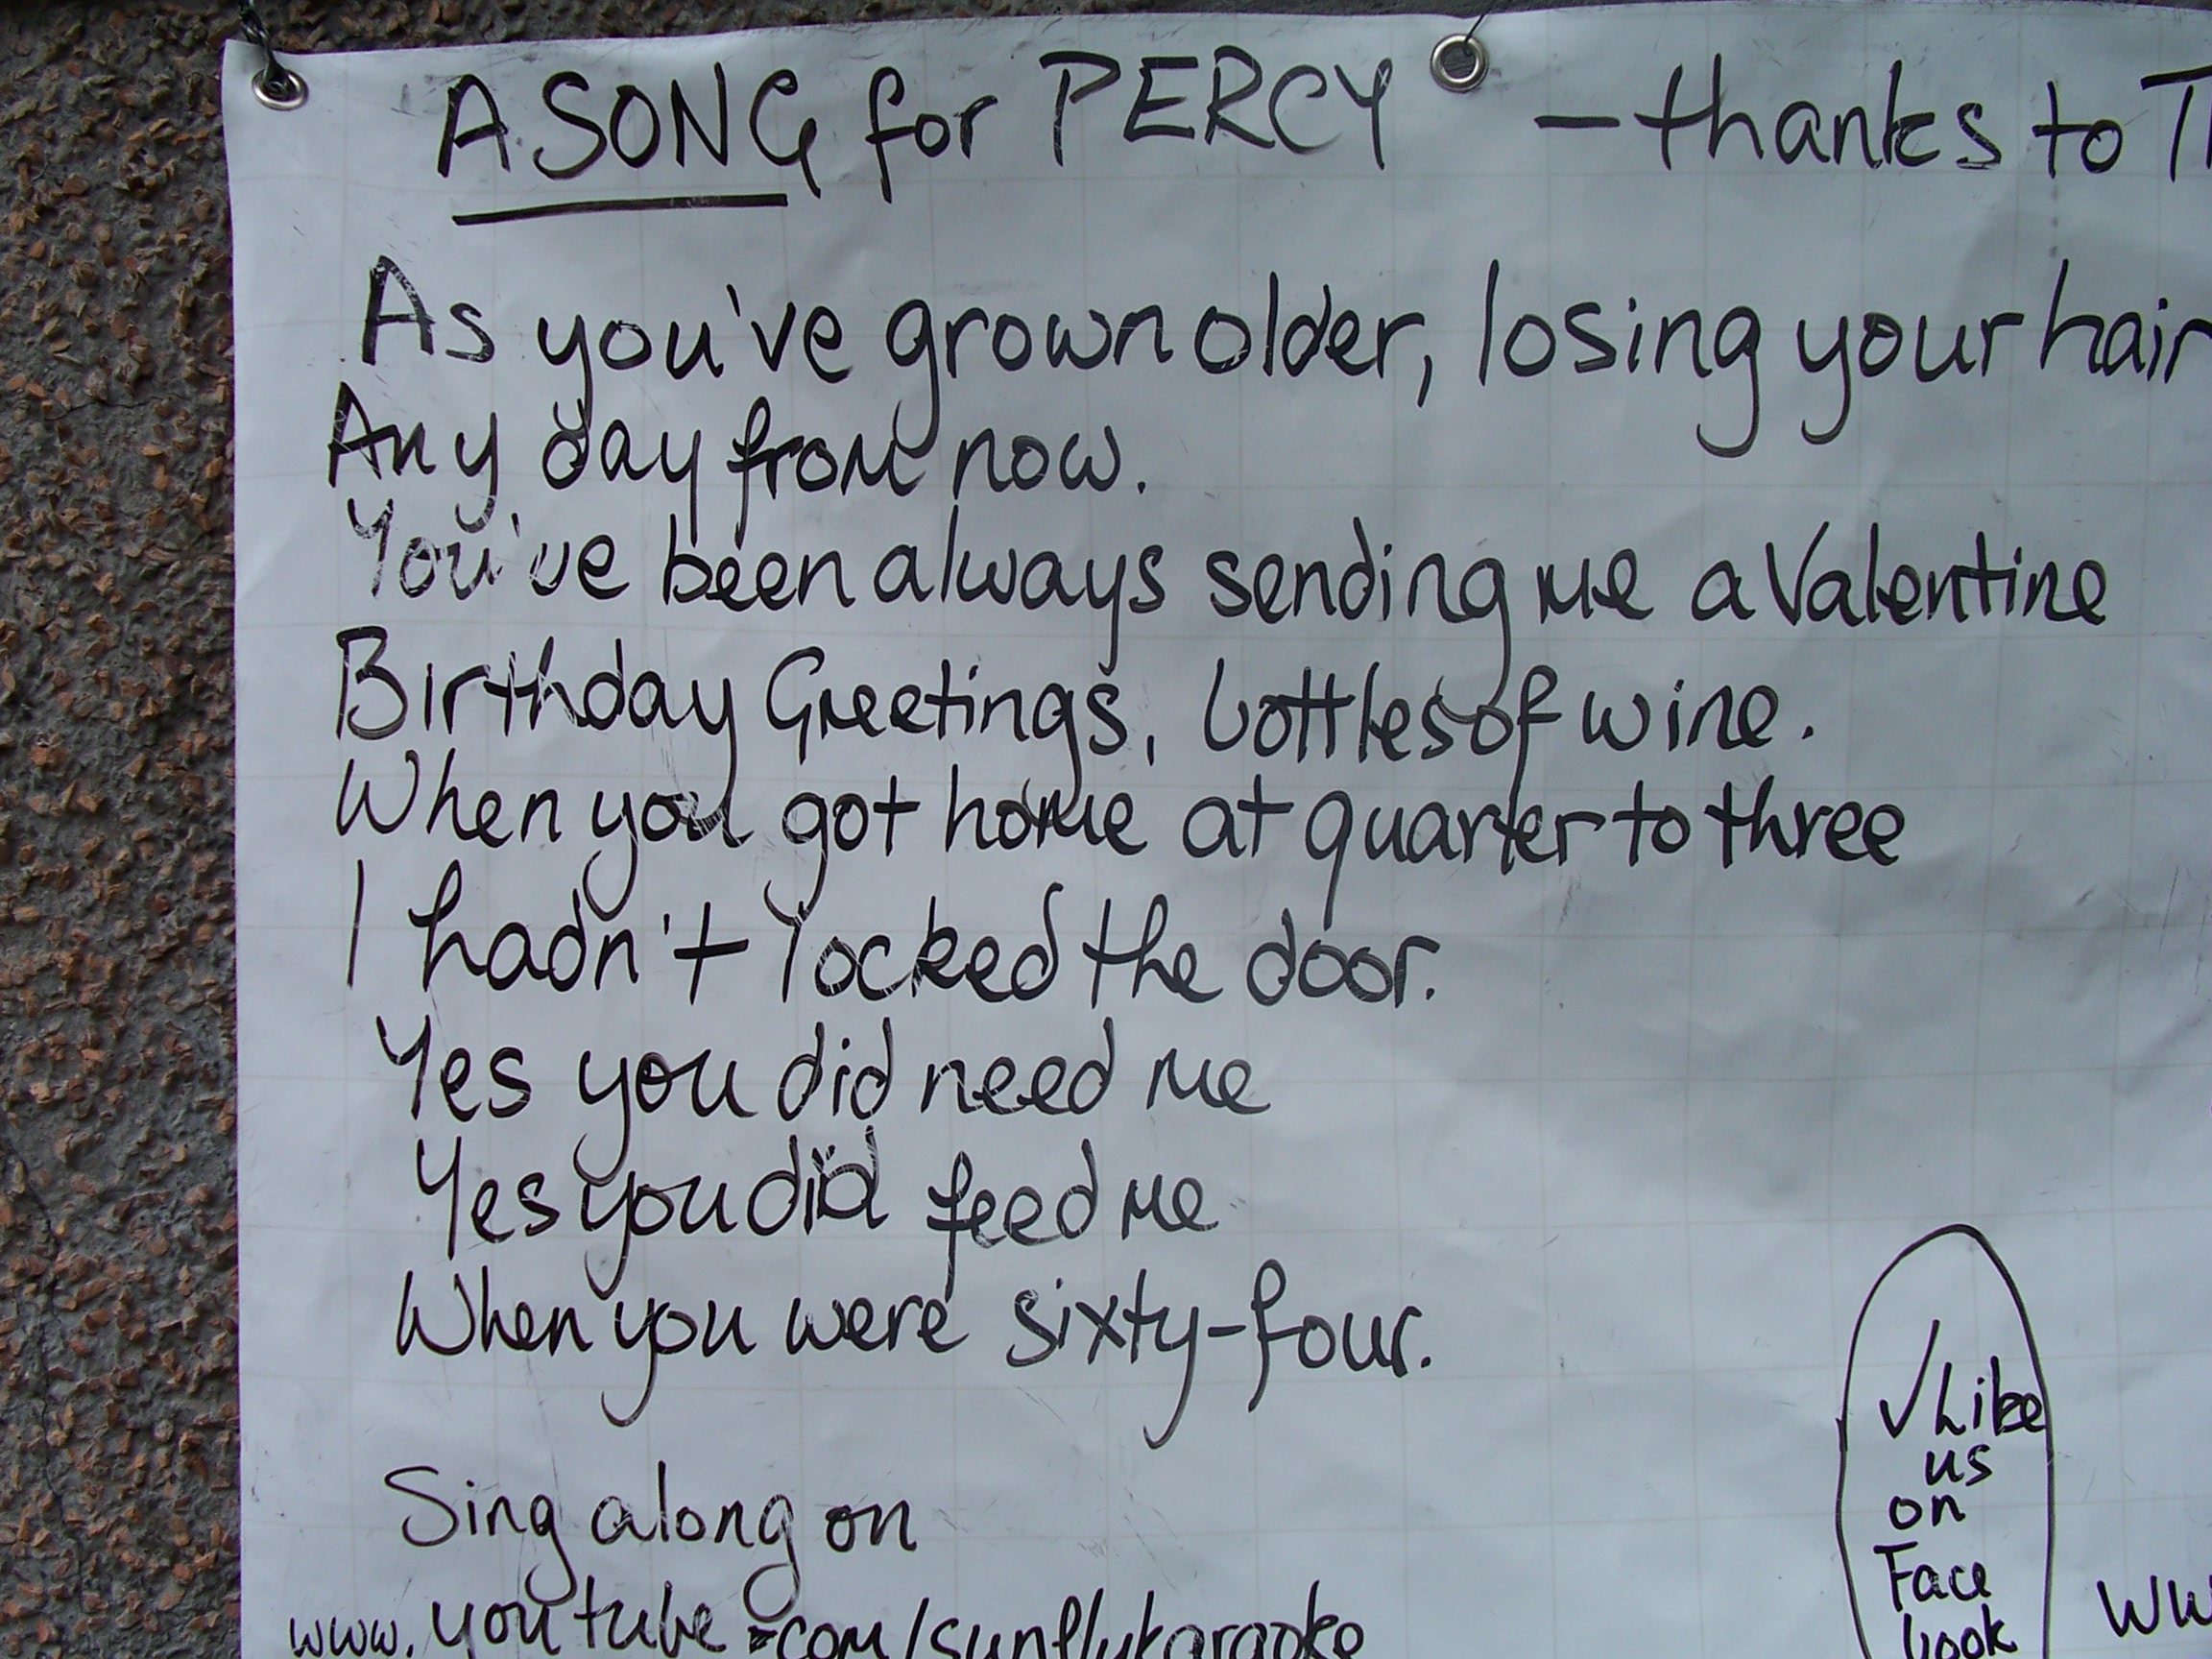 A SONG for PERCY - thanks to
As you've grown older, losing your hair
Any day from now.
You've been always sending me a Valentine
Birthday Greetings, bottles of wine.
When you got home at quarter to three
I hadn't locked the door.
Yes you did need me
Yes you did feed me
When you were sixty-four.
Sing along on
www.youtube.com/sunflykaraoke
✓ Like
us
on
Face
book